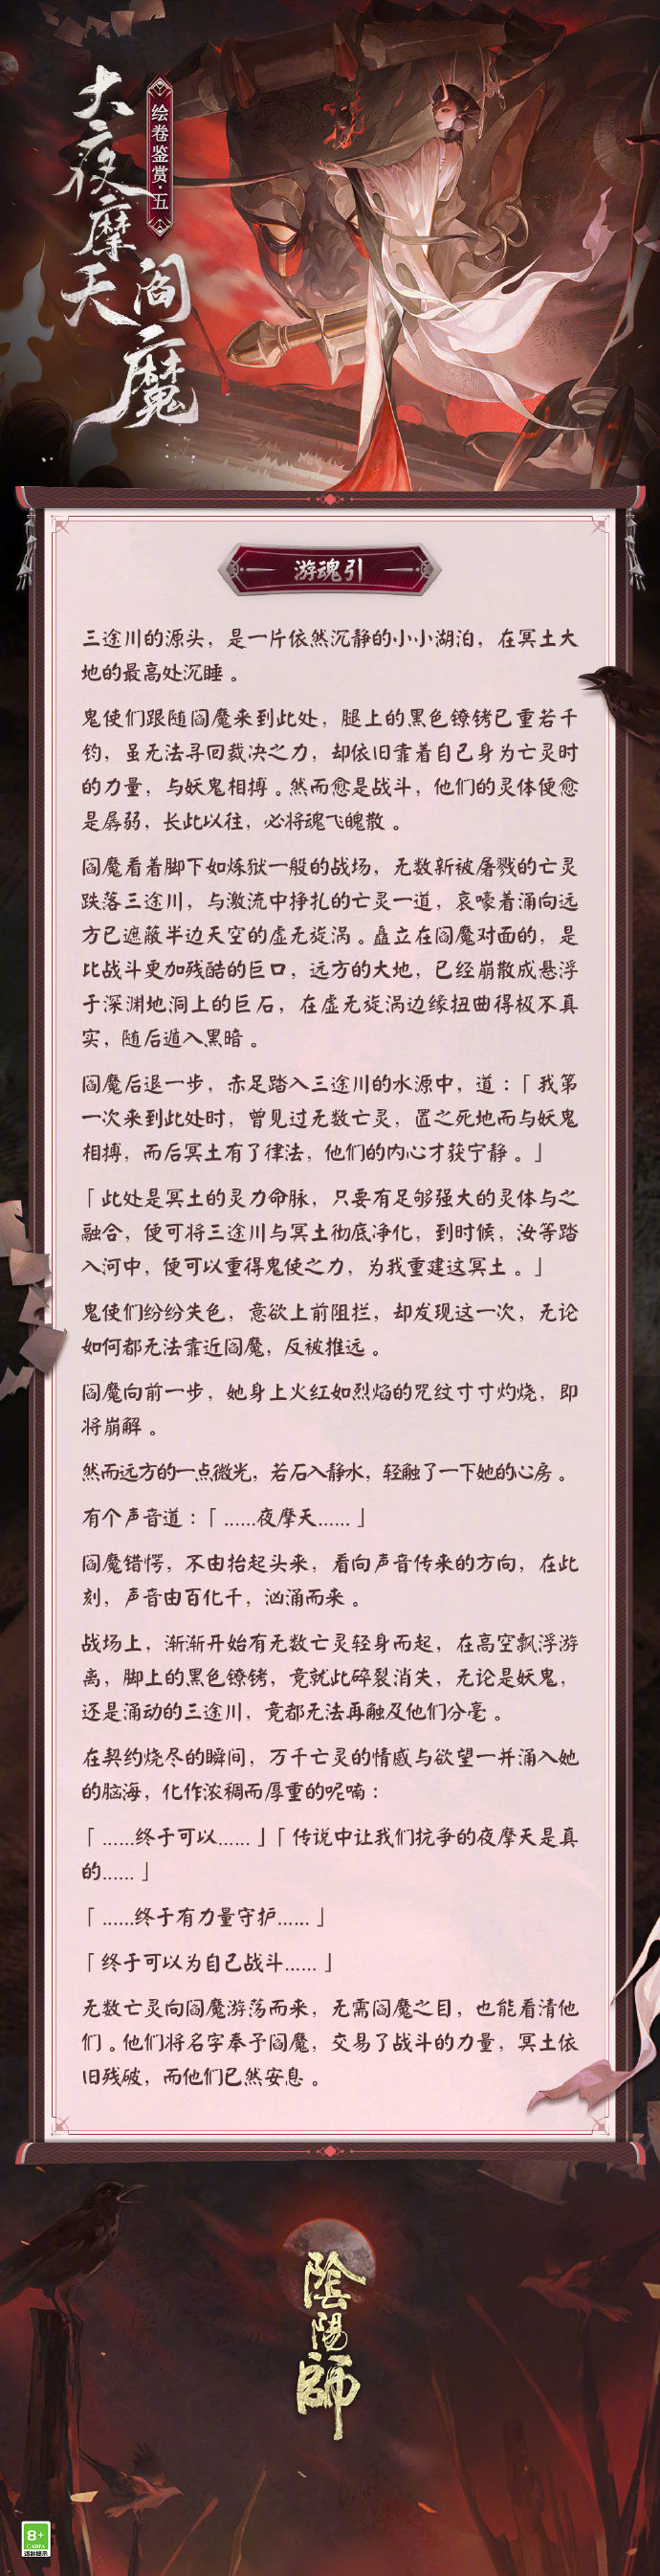 大夜摩天阎魔
绘卷鉴赏·五
游魂引
三途川的源头，是一片依然沉静的小小湖泊，在冥土大
地的最高处沉睡。
鬼使们跟随阎魔来到此处，腿上的黑色镣铐已重若千
钧，虽无法寻回裁决之力，却依旧靠着自己身为亡灵时
的力量，与妖鬼相搏。然而愈是战斗，他们的灵体便愈
是孱弱，长此以往，必将魂飞魄散。
阎魔看着脚下如炼狱一般的战场，无数新被屠戮的亡灵
跌落三途川，与激流中挣扎的亡灵一道，哀嚎着涌向远
方已遮蔽半边天空的虚无旋涡。矗立在阎魔对面的，是
比战斗更加残酷的巨口，远方的大地，已经崩散成悬浮
于深渊地洞上的巨石，在虚无旋涡边缘扭曲得极不真
实，随后遁入黑暗。
阎魔后退一步，赤足踏入三途川的水源中，道：「我第
一次来到此处时，曾见过无数亡灵，置之死地而与妖鬼
相搏，而后冥土有了律法，他们的内心才获宁静。」
「此处是冥土的灵力命脉，只要有足够强大的灵体与之
融合，便可将三途川与冥土彻底净化，到时候，汝等踏
入河中，便可以重得鬼使之力，为我重建这冥土。」
鬼使们纷纷失色，意欲上前阻拦，却发现这一次，无论
如何都无法靠近阎魔，反被推远。
阎魔向前一步，她身上火红如烈焰的咒纹寸寸灼烧，即
将崩解。
然而远方的一点微光，若石入静水，轻触了一下她的心房。
有个声音道：「……夜摩天……」
阎魔错愕，不由抬起头来，看向声音传来的方向，在此
刻，声音由百化千，汹涌而来。
战场上，渐渐开始有无数亡灵轻身而起，在高空飘浮游
离，脚上的黑色镣铐，竟就此碎裂消失，无论是妖鬼，
还是涌动的三途川，竟都无法再触及他们分毫。
在契约烧尽的瞬间，万千亡灵的情感与欲望一并涌入她
的脑海，化作浓稠而厚重的呢喃：
「……终于可以……」「传说中让我们抗争的夜摩天是真
的……」
「……终于有力量守护……」
「终于可以为自己战斗……」
无数亡灵向阎魔游荡而来，无需阎魔之目，也能看清他
们。他们将名字奉予阎魔，交易了战斗的力量，冥土依
旧残破，而他们已然安息。
陰陽師
8+
CADPA
适龄提示